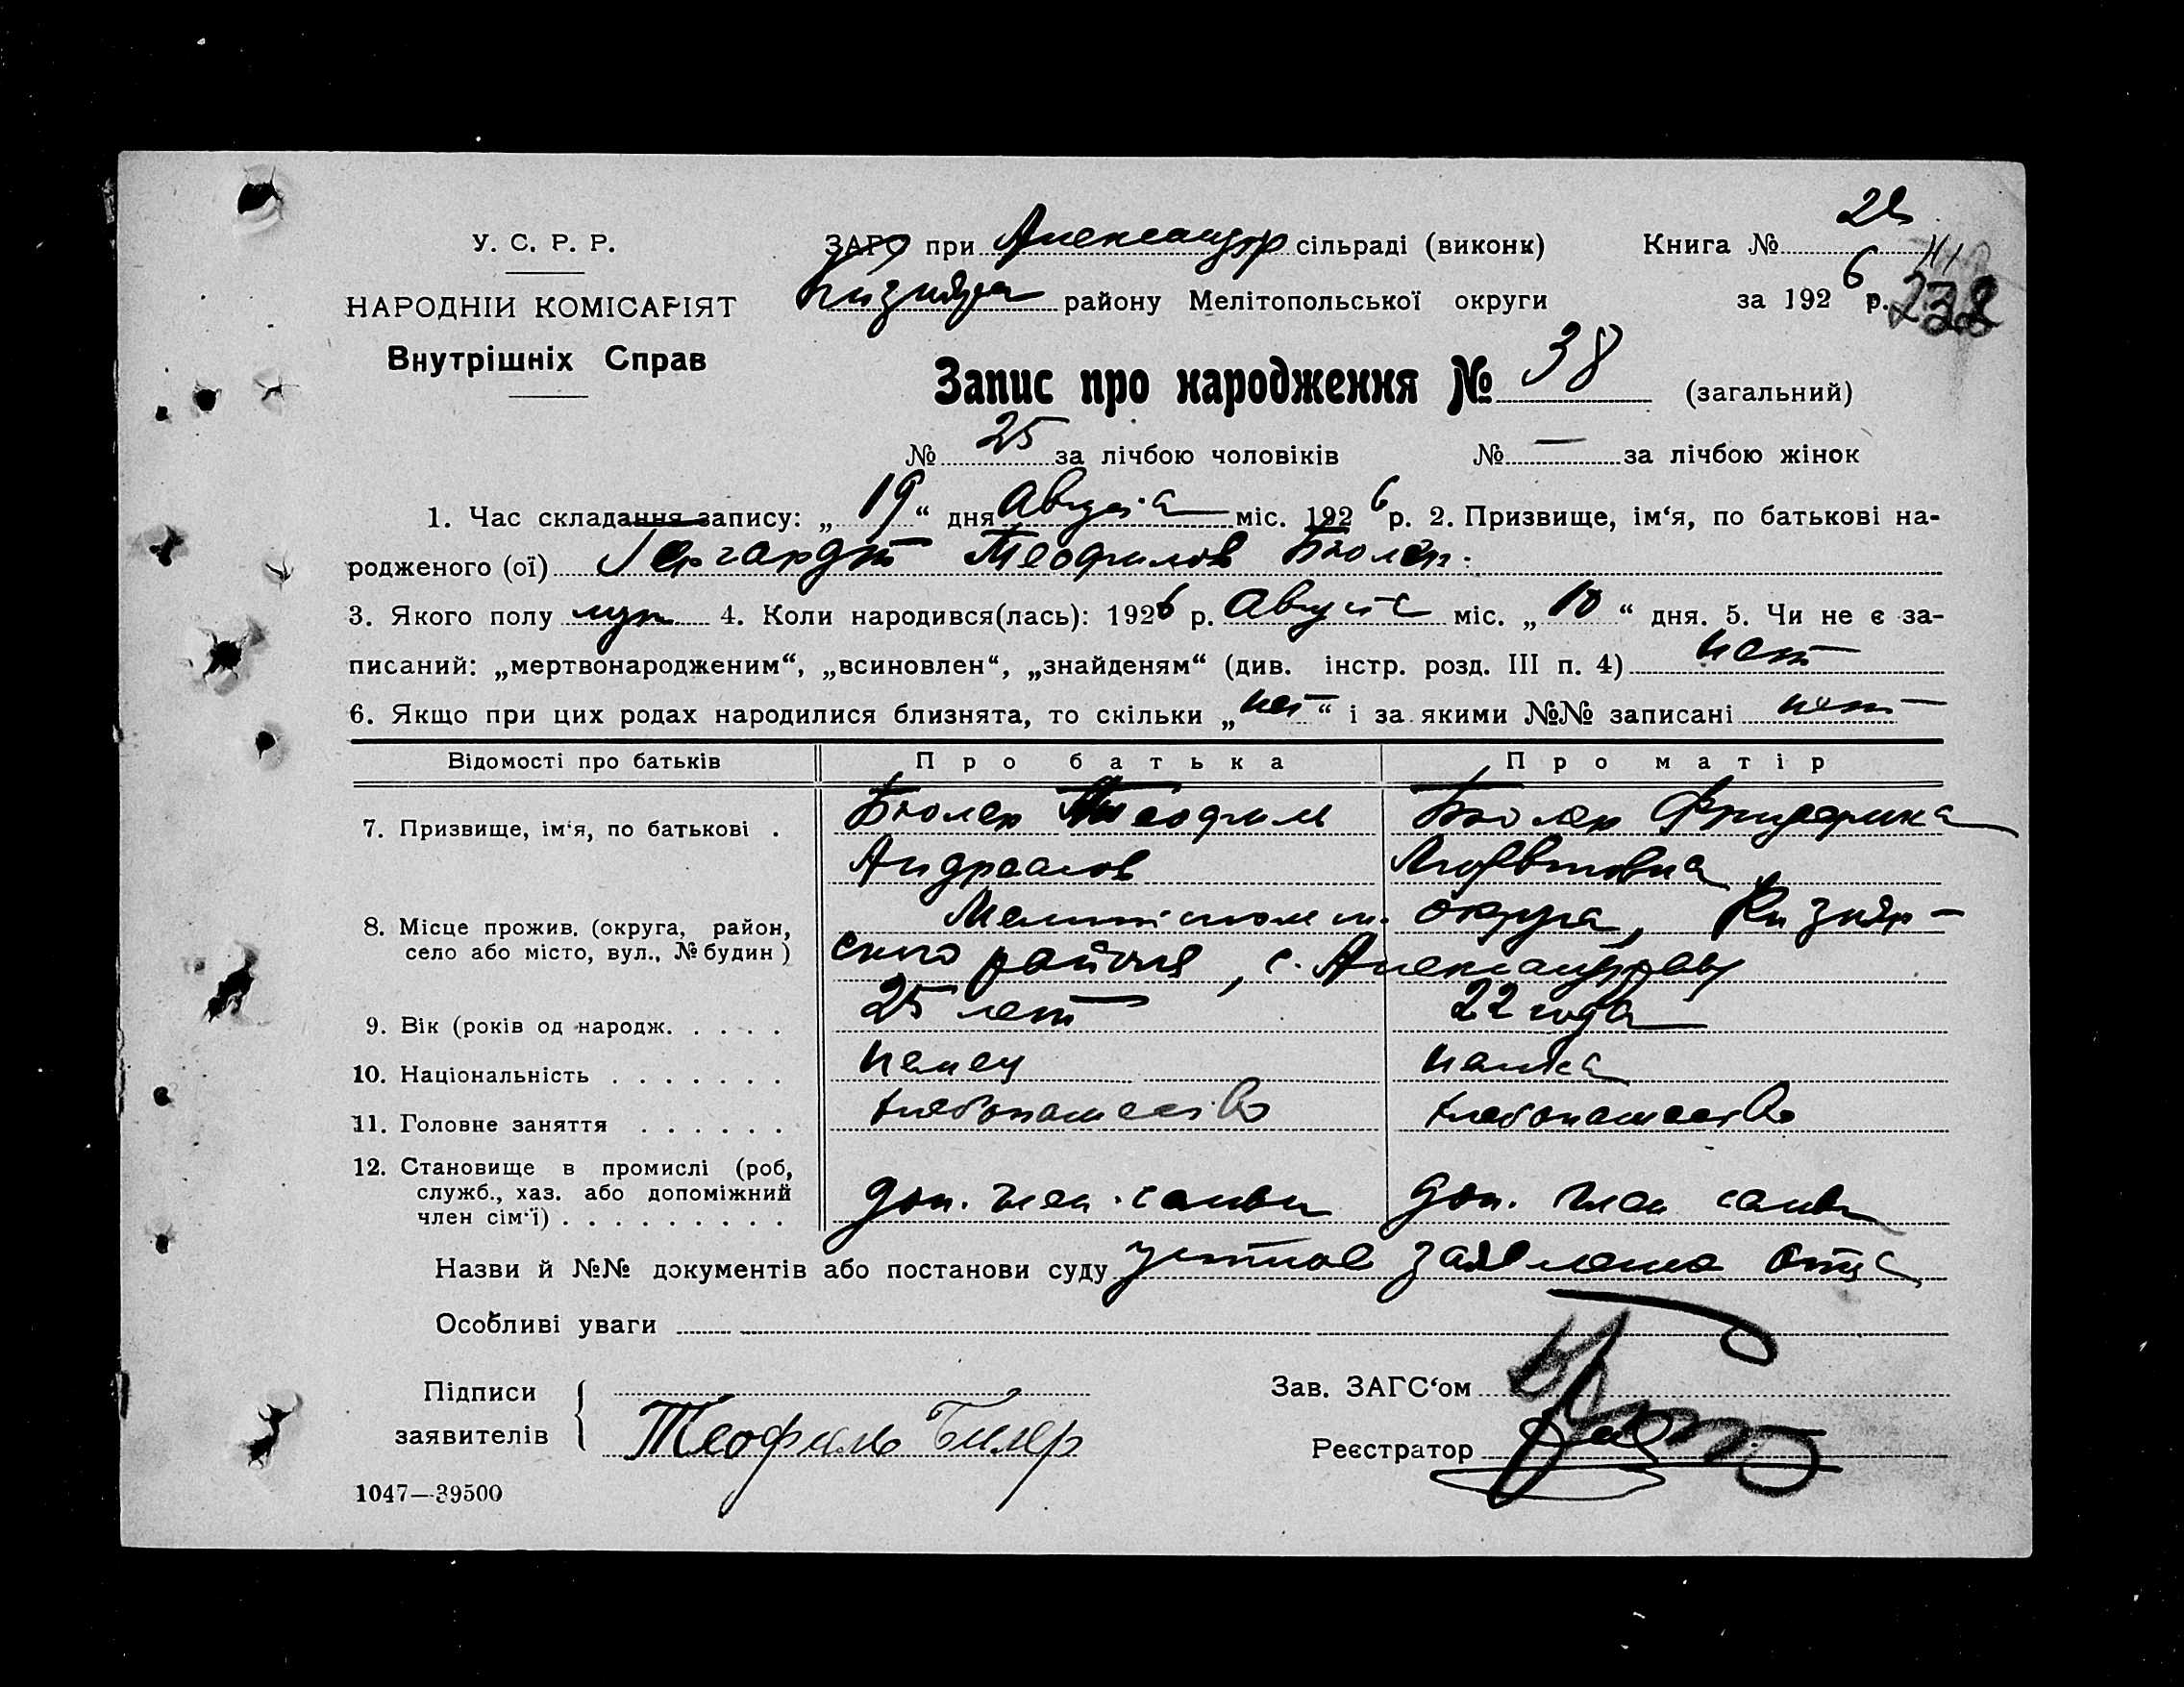 У. С. Р. Р.
НАРОДНІЙ КОМІСАРІЯТ
Внутрішніх Справ
ЗАГС при Александр сільраді (виконк)
Кизияр района району Мелітопольської округи
Книга №
за 1926 р. 238
Запис про народження № 38 (загальний)
№ 25 за лічбою чоловіків № — за лічбою жінок
1. Час складання запису: „ 19 “ дня Августа міс. 1926 р. 2. Призвище, ім‘я, по батькові на-
родженого (ої) Гергардт Теофилов Бюлер.
3. Якого полу муж 4. Коли народився(лась): 1926 р. Август міс. „ 10 “ дня. 5. Чи не є за-
писаний: „мертвонародженим“, „всиновлен“, „знайденям“ (див. інстр. розд. III п. 4) нет
6. Якщо при цих родах народилися близнята, то скільки „ нет “ і за якими №№ записані нет
Відомості про батьків Про батька Про матір
7. Призвище, ім‘я, по батькові . Бюлер Теофиль Бюлер Фридерика
Андреасов
8. Місце прожив. (округа, район, Мелитопольск. округа, Кизияр-
село або місто, вул., № будин ) ского района, с. Александровку
9. Вік (років од народж. . . . . 25 лет 22 года
10. Національність . . . . . . . немец немка
11. Головне заняття . . . . . . хлебопашество хлебопашество
12. Становище в промислі (роб,
служб., хаз. або допоміжний
член сім‘ї) . . . . . . . . . доп. член семьи доп. член семьи
Назви й №№ документів або постанови суду устное заявление отца
Особливі уваги
Підписи
заявителів Теофиль Билер
Зав. ЗАГС‘ом
Реєстратор
1047—39500